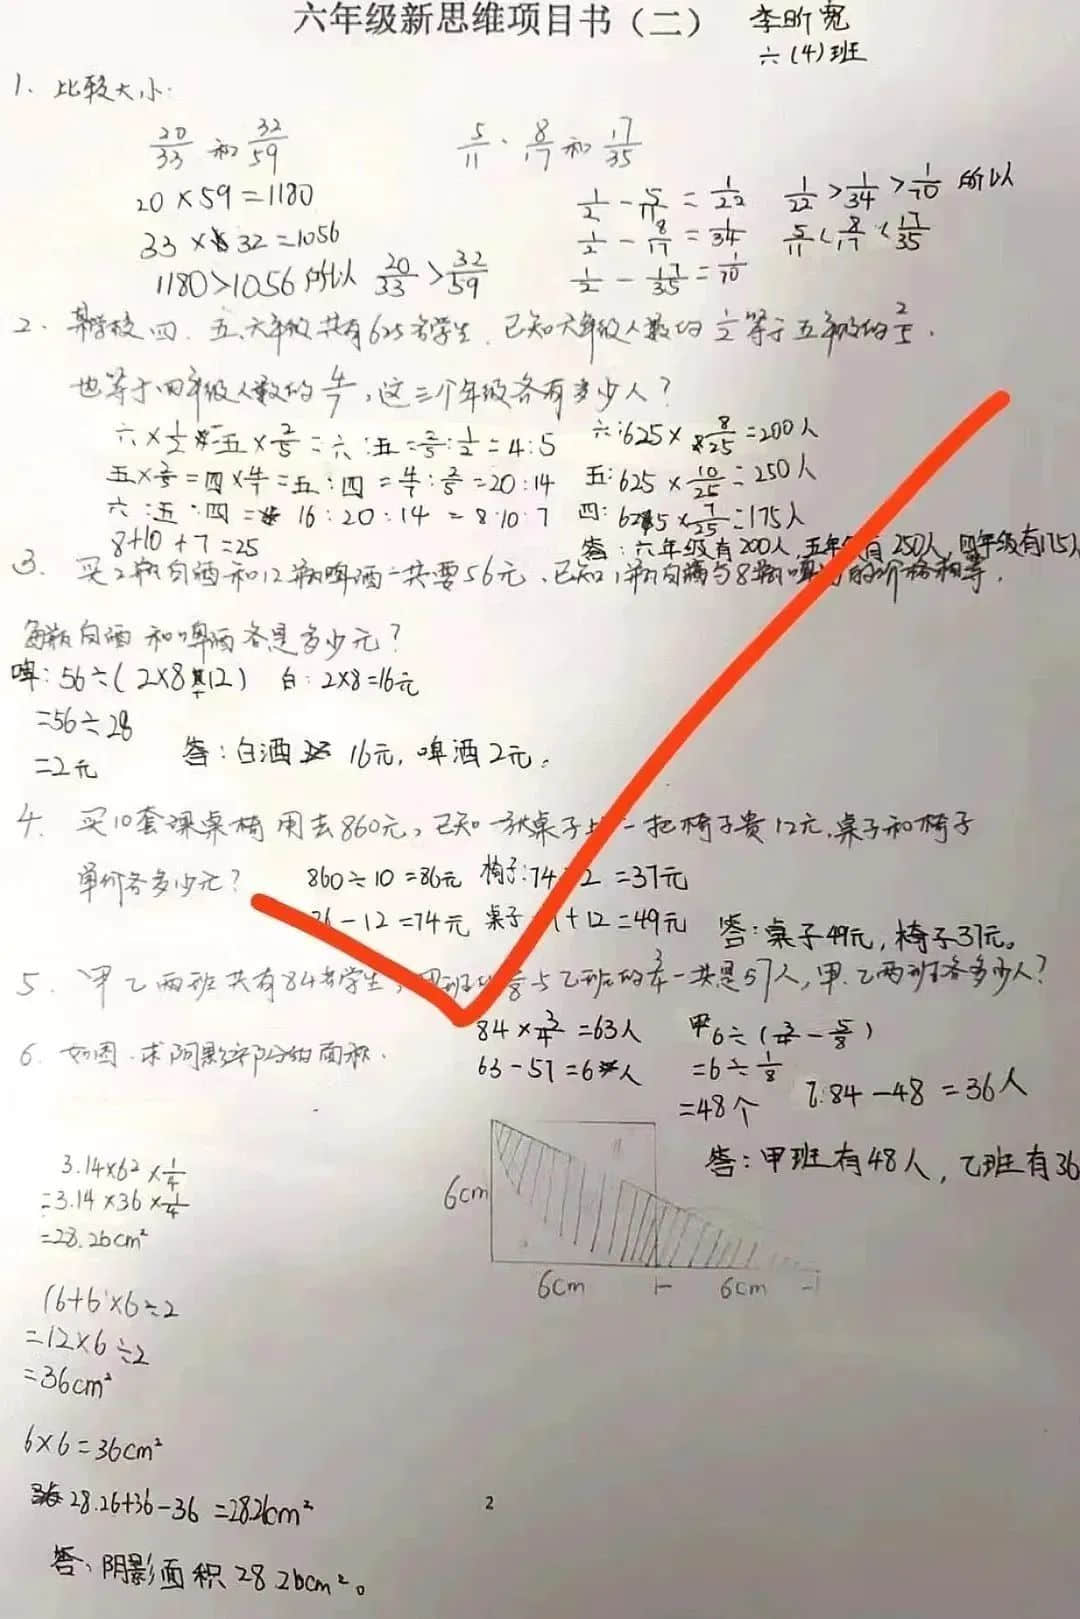 六年级新思维项目书（二）
李昕宽
六(4)班
1、比较大小：
20/33 和 32/59
5/11、8/17 和 17/35
20×59=1180
33×32=1056
1180>1056 所以 20/33 > 32/59
1/2 - 5/11 = 1/22
1/2 - 8/17 = 1/34
1/2 - 17/35 = 1/70
1/22 > 1/34 > 1/70 所以
5/11 < 8/17 < 17/35
2、某学校四、五、六年级共有625名学生，已知六年级人数的1/2等于五年级的2/5，
也等于四年级人数的4/7，这三个年级各有多少人？
六×1/2=五×2/5=六:五=2/5:1/2=4:5
五×2/5=四×4/7=五:四=4/7:2/5=20:14
六:五:四=16:20:14=8:10:7
8+10+7=25
六:625×8/25=200人
五:625×10/25=250人
四:625×7/25=175人
答:六年级有200人,五年级有250人,四年级有175人
3、买2瓶白酒和12瓶啤酒一共要56元，已知1瓶白酒与8瓶啤酒的价格相等，
每瓶白酒和啤酒各是多少元？
啤:56÷(2×8+12)
=56÷28
=2元
白:2×8=16元
答:白酒16元,啤酒2元。
4、买10套课桌椅用去860元，已知一张桌子比一把椅子贵12元,桌子和椅子
单价各多少元？
860÷10=86元
86-12=74元
椅子:74÷2=37元
桌子 +12=49元
答:桌子49元,椅子37元。
5、甲乙两班共有84名学生，甲班的5/8与乙班的3/4一共是57人,甲、乙两班各多少人?
84×3/4=63人
63-57=6人
甲6÷(3/4-5/8)
=6÷1/8
=48个
乙:84-48=36人
答:甲班有48人,乙班有36
6、如图,求阴影部分的面积.
6cm
6cm
6cm
3.14×6²×1/4
=3.14×36×1/4
=28.26cm²
(6+6)×6÷2
=12×6÷2
=36cm²
6×6=36cm²
28.26+36-36=28.26cm²
答:阴影面积28.26cm²。
2